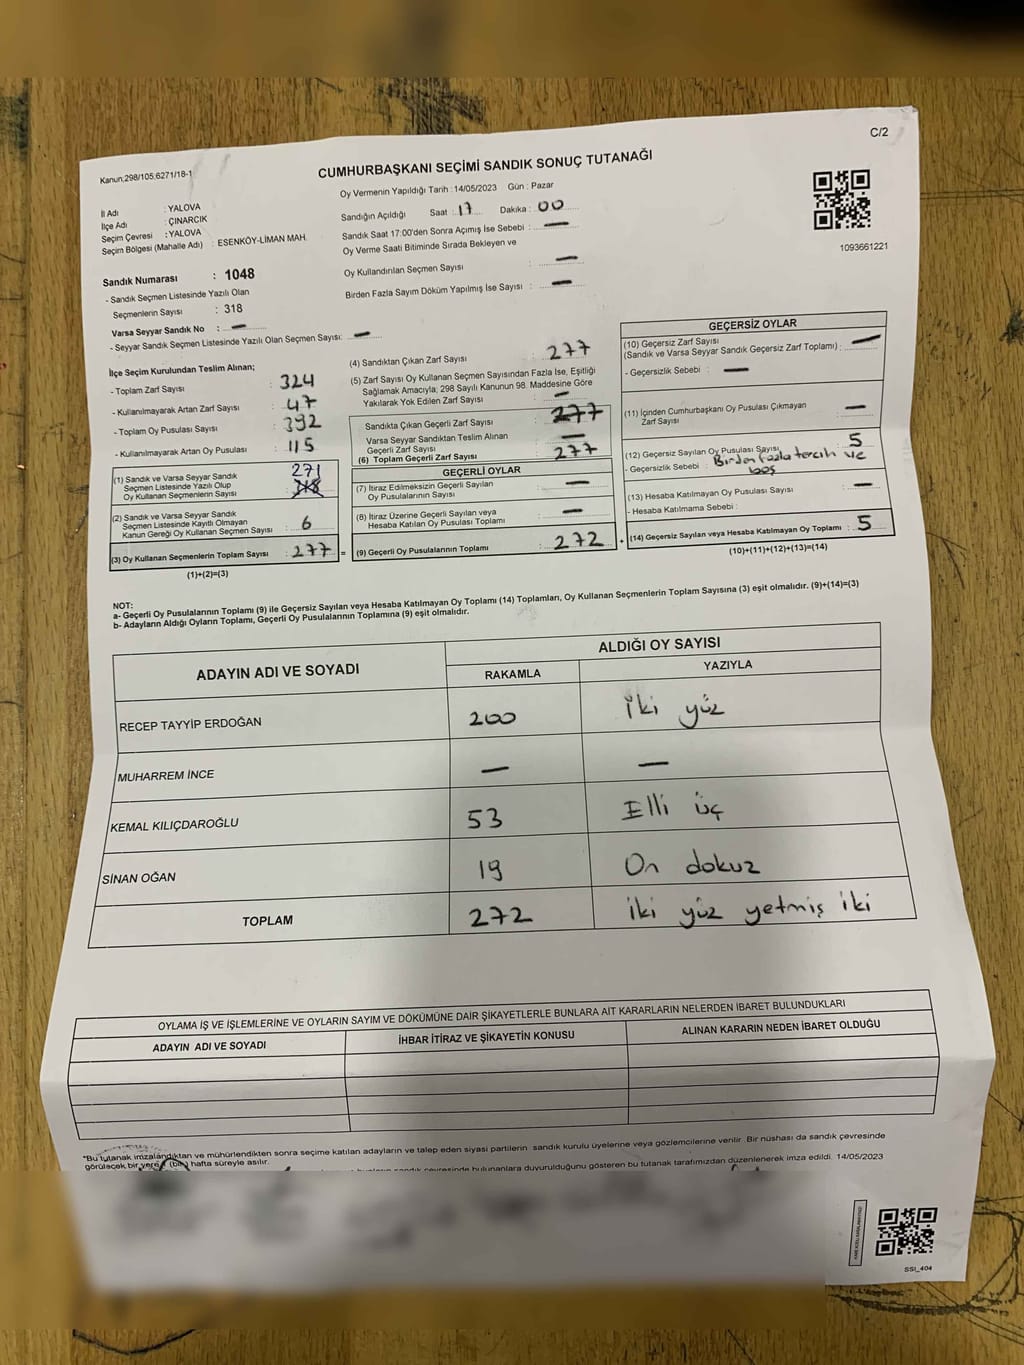 C/2
Kanun:298/105;6271/18-1
CUMHURBAŞKANI SEÇİMİ SANDIK SONUÇ TUTANAĞI
Oy Vermenin Yapıldığı Tarih : 14/05/2023 Gün : Pazar
İl Adı : YALOVA
İlçe Adı : ÇINARCIK
Seçim Çevresi : YALOVA
Seçim Bölgesi (Mahalle Adı) : ESENKÖY-LİMAN MAH.
Sandığın Açıldığı Saat : 17 Dakika : 00
Sandık Saat 17:00'den Sonra Açımış İse Sebebi : —
Oy Verme Saati Bitiminde Sırada Bekleyen ve
Oy Kullandırılan Seçmen Sayısı : —
Birden Fazla Sayım Döküm Yapılmış İse Sayısı : —
1093661221
Sandık Numarası : 1048
- Sandık Seçmen Listesinde Yazılı Olan
Seçmenlerin Sayısı : 318
Varsa Seyyar Sandık No : —
- Seyyar Sandık Seçmen Listesinde Yazılı Olan Seçmen Sayısı: —
İlçe Seçim Kurulundan Teslim Alınan;
- Toplam Zarf Sayısı : 324
- Kullanılmayarak Artan Zarf Sayısı : 47
- Toplam Oy Pusulası Sayısı : 392
- Kullanılmayarak Artan Oy Pusulası : 115
(1) Sandık ve Varsa Seyyar Sandık
Seçmen Listesinde Yazılı Olup
Oy Kullanan Seçmenlerin Sayısı : 271 318
(2) Sandık ve Varsa Seyyar Sandık
Seçmen Listesinde Kayıtlı Olmayan
Kanun Gereği Oy Kullanan Seçmen Sayısı : 6
(3) Oy Kullanan Seçmenlerin Toplam Sayısı : 277 =
(1)+(2)=(3)
(4) Sandıktan Çıkan Zarf Sayısı : 277
(5) Zarf Sayısı Oy Kullanan Seçmen Sayısından Fazla İse, Eşitliği
Sağlamak Amacıyla; 298 Sayılı Kanunun 98. Maddesine Göre
Yakılarak Yok Edilen Zarf Sayısı : —
Sandıkta Çıkan Geçerli Zarf Sayısı : 277
Varsa Seyyar Sandıktan Teslim Alınan
Geçerli Zarf Sayısı : —
(6) Toplam Geçerli Zarf Sayısı : 277
GEÇERLİ OYLAR
(7) İtiraz Edilmeksizin Geçerli Sayılan
Oy Pusulalarının Sayısı : —
(8) İtiraz Üzerine Geçerli Sayılan veya
Hesaba Katılan Oy Pusulası Toplamı : —
(9) Geçerli Oy Pusulalarının Toplamı : 272 +
GEÇERSİZ OYLAR
(10) Geçersiz Zarf Sayısı
(Sandık ve Varsa Seyyar Sandık Geçersiz Zarf Toplamı) : —
- Geçersizlik Sebebi : —
(11) İçinden Cumhurbaşkanı Oy Pusulası Çıkmayan
Zarf Sayısı : —
(12) Geçersiz Sayılan Oy Pusulası Sayısı : 5
- Geçersizlik Sebebi : Birden fazla tercih ve
boş
(13) Hesaba Katılmayan Oy Pusulası Sayısı : —
- Hesaba Katılmama Sebebi :
(14) Geçersiz Sayılan veya Hesaba Katılmayan Oy Toplamı : 5
(10)+(11)+(12)+(13)=(14)
NOT:
a- Geçerli Oy Pusulalarının Toplamı (9) ile Geçersiz Sayılan veya Hesaba Katılmayan Oy Toplamı (14) Toplamları, Oy Kullanan Seçmenlerin Toplam Sayısına (3) eşit olmalıdır. (9)+(14)=(3)
b- Adayların Aldığı Oyların Toplamı, Geçerli Oy Pusulalarının Toplamına (9) eşit olmalıdır.
ADAYIN ADI VE SOYADI
ALDIĞI OY SAYISI
RAKAMLA YAZIYLA
RECEP TAYYİP ERDOĞAN 200 İki yüz
MUHARREM İNCE — —
KEMAL KILIÇDAROĞLU 53 Elli üç
SİNAN OĞAN 19 On dokuz
TOPLAM 272 iki yüz yetmiş iki
OYLAMA İŞ VE İŞLEMLERİNE VE OYLARIN SAYIM VE DÖKÜMÜNE DAİR ŞİKAYETLERLE BUNLARA AİT KARARLARIN NELERDEN İBARET BULUNDUKLARI
ADAYIN ADI VE SOYADI İHBAR İTİRAZ VE ŞİKAYETİN KONUSU ALINAN KARARIN NEDEN İBARET OLDUĞU
"Bu tutanak imzalandıktan ve mühürlendikten sonra seçime katılan adayların ve talep eden siyasi partilerin sandık kurulu üyelerine veya gözlemcilerine verilir. Bir nüshası da sandık çevresinde
görülecek bir yere 1 (bir) hafta süreyle asılır.
sandık çevresinde bulunanlara duyurulduğunu gösteren bu tutanak tarafımızdan düzenlenerek imza edildi. 14/05/2023
SSI_404